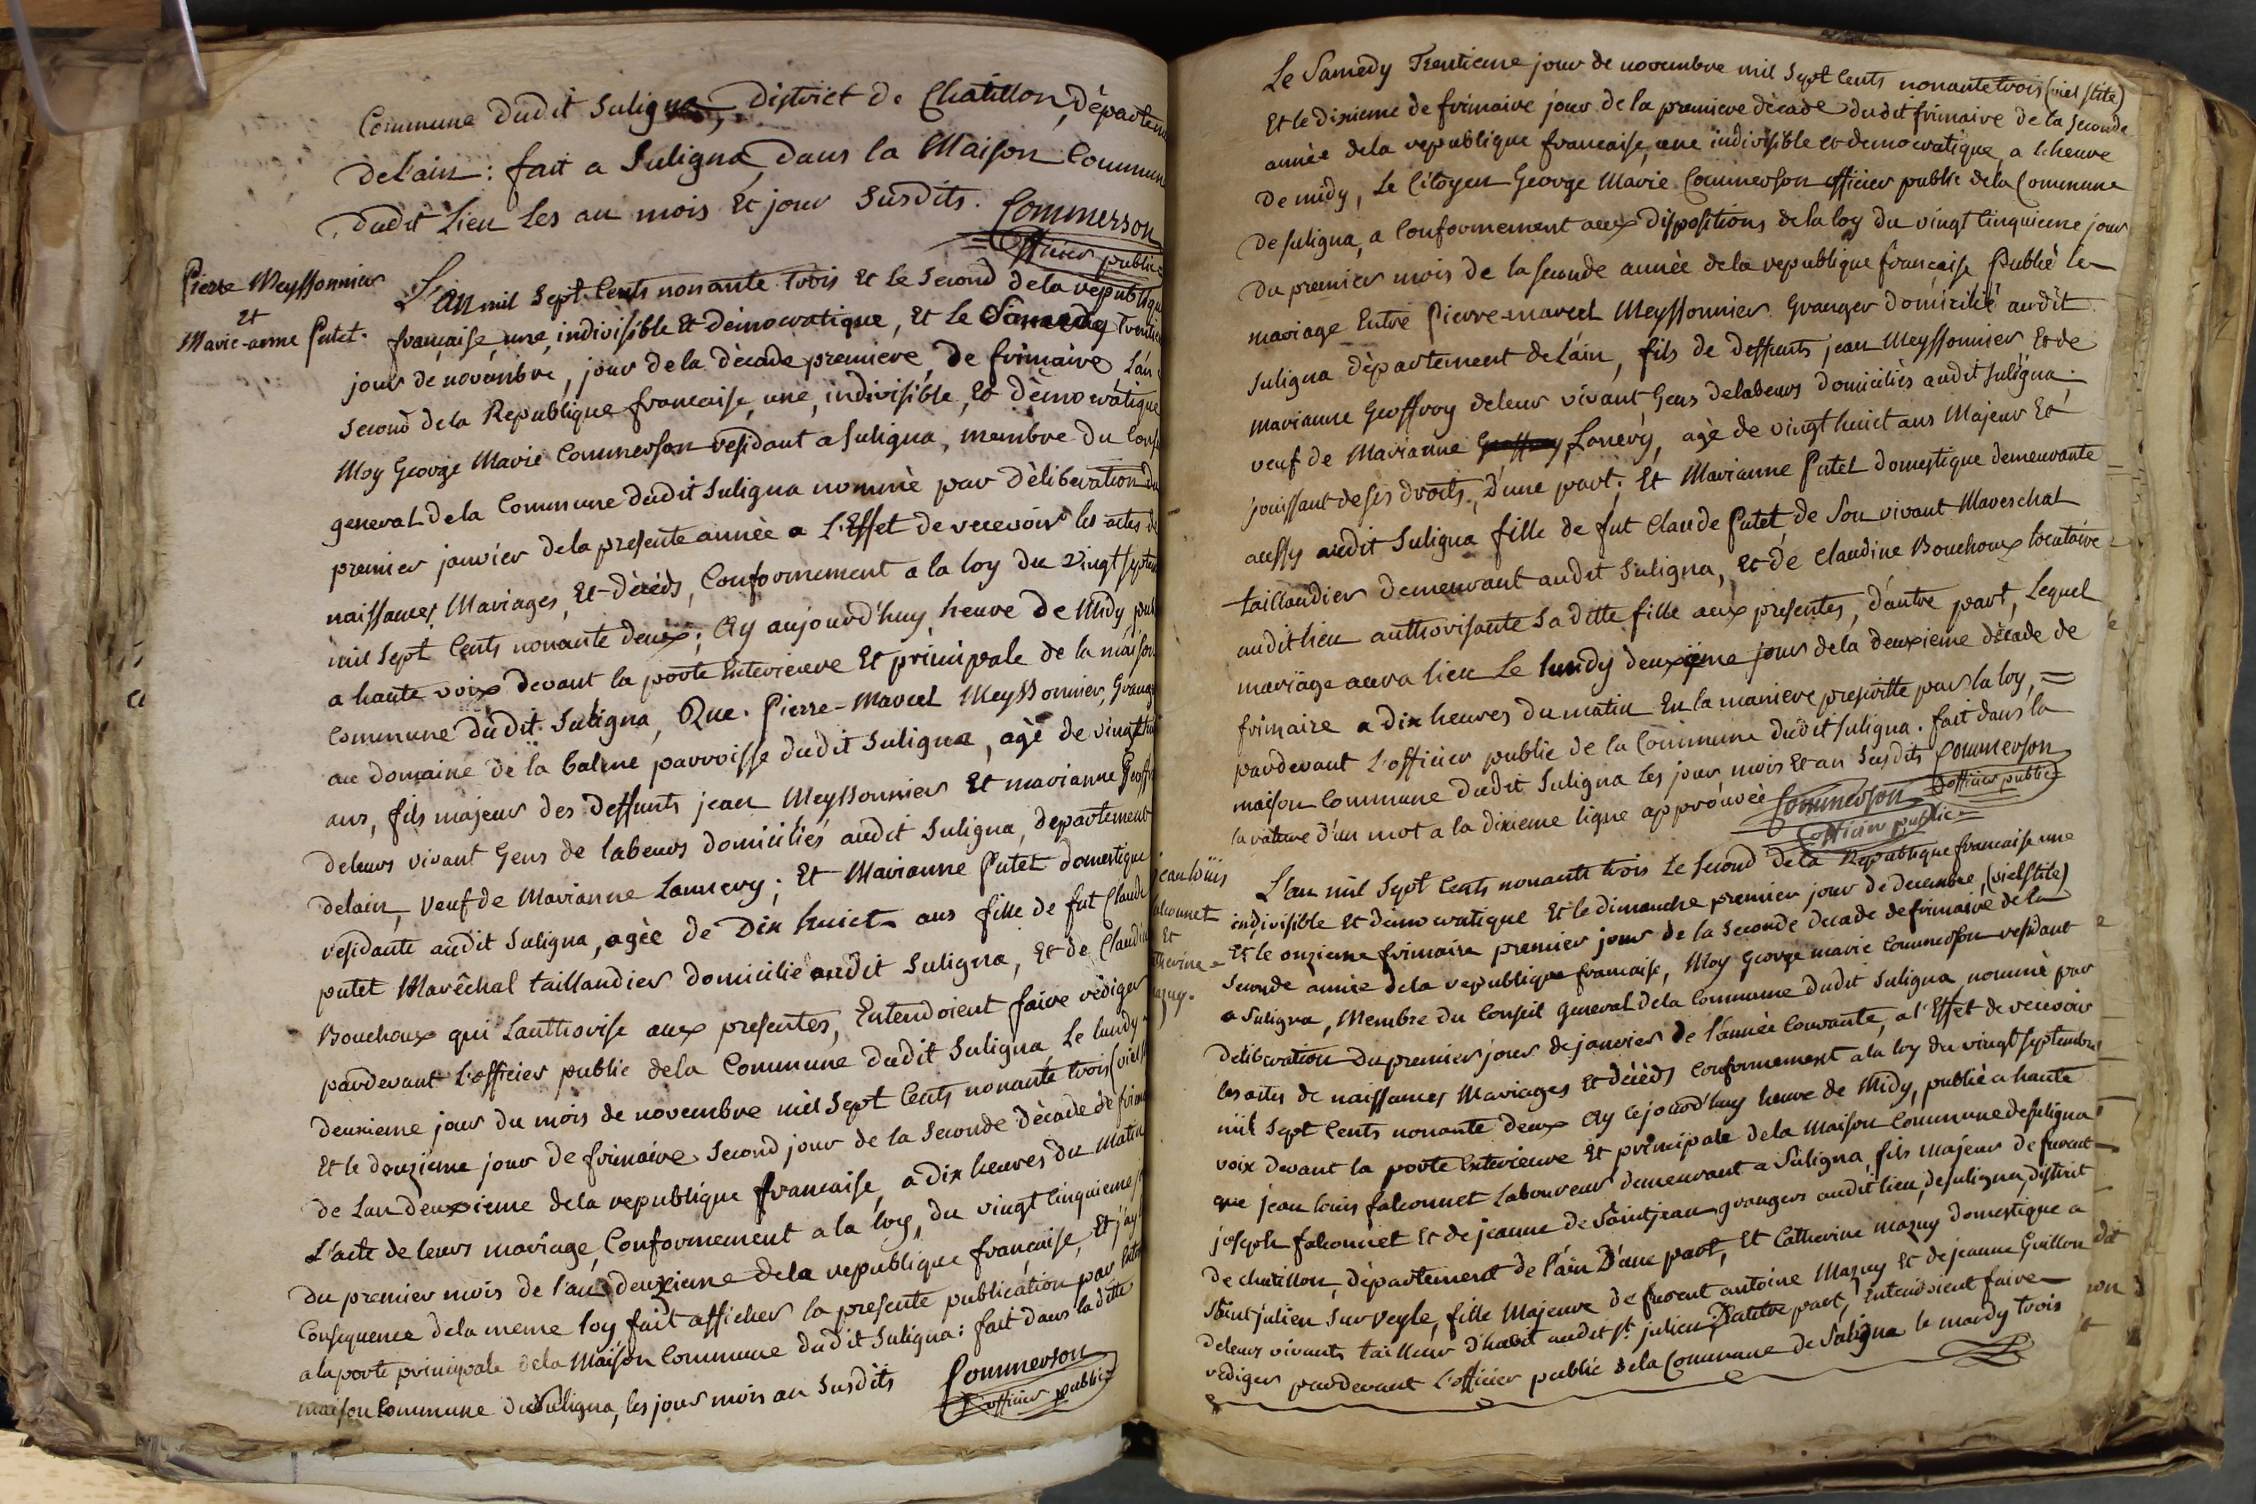 Commune dudit Suligna, District de Chatillon, Départem
Del'ain : fait a Suligna, dans la Maison Commun
dudit Lieu les an mois Et jour susdits. Commerson
officier public
Pierre Meyssonnier
et
Marie-anne Putet.
L'an mil Sept Cents nonante trois Et le Second dela republique
française, une, indivisible Et démocratique, Et le Samedy Trentie
jour de novembre, jour dela décade premiere, de frimaire L'an
Second dela Republique francaise, une, indivisible, Et démocratique
Moy George Marie Commerson residant a Suligna, membre du Cons
general dela Commune dudit Suligna nommé par déliberation du
premier janvier dela presente année a L'Effet de recevoir les actes de
naissances, Mariages, Et décéds, Conformement a la loy du vingt septem
mil Sept Cents nonante deux; Ay aujourd'huy, heure de Midy, pub
a haute voix devant la porte Exterieure Et principale de la maison
Commune dudit Suligna, Que Pierre-Marcel Meyssonnier, Grang
au domaine de la balme parroisse dudit Suligna, agé de vingt hui
ans, fils majeur des deffunts jean Meyssonnier Et marianne Geoffr
deleurs vivant Gens de labeurs domiciliés audit Suligna, departement
delain, veuf de Marianne Lannery; Et Marianne Putet domestique
residante audit Suligna, agée de Dix huict ans fille de fut Claude
putet Marêchal taillandier domicilié audit Suligna, Et de Claudin
Bouchoux qui Lauthorise aux presentes, Entendoient faire rédiger
pardevant L'officier public dela Commune dudit Suligna, Le lundy
deuxieme jour du mois de novembre mil Sept Cents nonante trois (viel s
Et le douzieme jour de frimaire Second jour de la Seconde décade de frim
de Lan deuxieme dela republique francaise, a dix heures du matin
L'acte de leurs mariage, Conformement a la loy, du vingt Cinquieme j
du premier mois de l'an deuxieme dela republique francaise, Et j'ay
Consequence dela meme loy fait afficher la presente publication par Extr
a la porte principale dela Maison Commune dudit Suligna : fait dans la ditte
maison Commune de Suligna, les jour mois an susdits Commerson
officier public
Le Samedy Trentieme jour de novembre mil Sept Cents nonante trois (viel stile)
Et le dixieme de frimaire jour de la premiere décade dudit frimaire de la Seconde
année dela republique francaise, une indivisible et democratique, a l'heure
De midy, Le Citoyen George Marie Commerson officier public dela Commune
de Suligna, a Conformement aux dispositions dela loy du vingt Cinquieme jour
du premier mois de la Seconde année dela republique francaise Publié le
mariage Entre Pierre-marcel Meyssonnier Granger domicilié audit
Suligna département del'ain, fils de deffunts jean Meyssonnier Et de
marianne Geoffroy deleur vivant Gens delabeurs domiciliés audit Suligna
veuf de Marianne Geoffroy Lonery, agé de vingt huict ans Majeur Et
jouissant deses droits, D'une part; Et Marianne Putet domestique demeurante
aussy audit Suligna fille de fut Claude Putet de Son vivant Mareschal
taillandier demeurant audit Suligna, Et de Claudine Bouchoux locataire
audit lieu authorisante Sa ditte fille aux presentes, d'autre part, Lequel
mariage aura lieu Le lundy deuxieme jour dela deuxieme décade de
frimaire a dix heures du matin En la maniere prescritte par la loy,
pardevant L'officier public de la Commune dudit Suligna. fait dans la
maison Commune dudit Suligna les jour, mois Et an Susdits Commerson
officier public
la rature d'un mot a la dixieme ligne approuvée Commerson
officier public
jean louis
falconnet
Et
Catherine
mazuy.
L'an mil Sept Cents nonante trois Le Second de la Republique francaise une
indivisible Et démocratique Et le dimanche premier jour de Decembre, (viel stile)
Et le onzieme frimaire premier jour de la Seconde decade de frimaire de la
Seconde année dela republique francaise, Moy George marie Commerson residant
a Suligna, Membre du Conseil General dela Commune dudit Suligna nommé par
déliberation du premier jour de janvier de l'année Courante, a l'Effet de recevoir
les actes de naissances Mariages Et décéds Conformement a la loy du vingt septembre
mil Sept Cents nonante deux Ay cejourd'huy heure de Midy, publié a haute
voix devant la porte Exterieure Et principale dela Maison Commune de Suligna
que jean louis falconnet Laboureur demeurant a Suligna, fils Majeur de furent
joseph falconnet Et de jeanne de Saintjean grangers audit lieu, de suligna, district
de chatillon, département de l'ain D'une part, Et Catherine mazuy domestique a
Saint julien Sur veyle, fille Majeure de furent antoine Mazuy Et de jeanne Guillon
deleurs vivants tailleur d'habit audit St julien D'autre part, Entendoient faire
rediger pardevant L'officier public dela Commune de Suligna le mardy trois